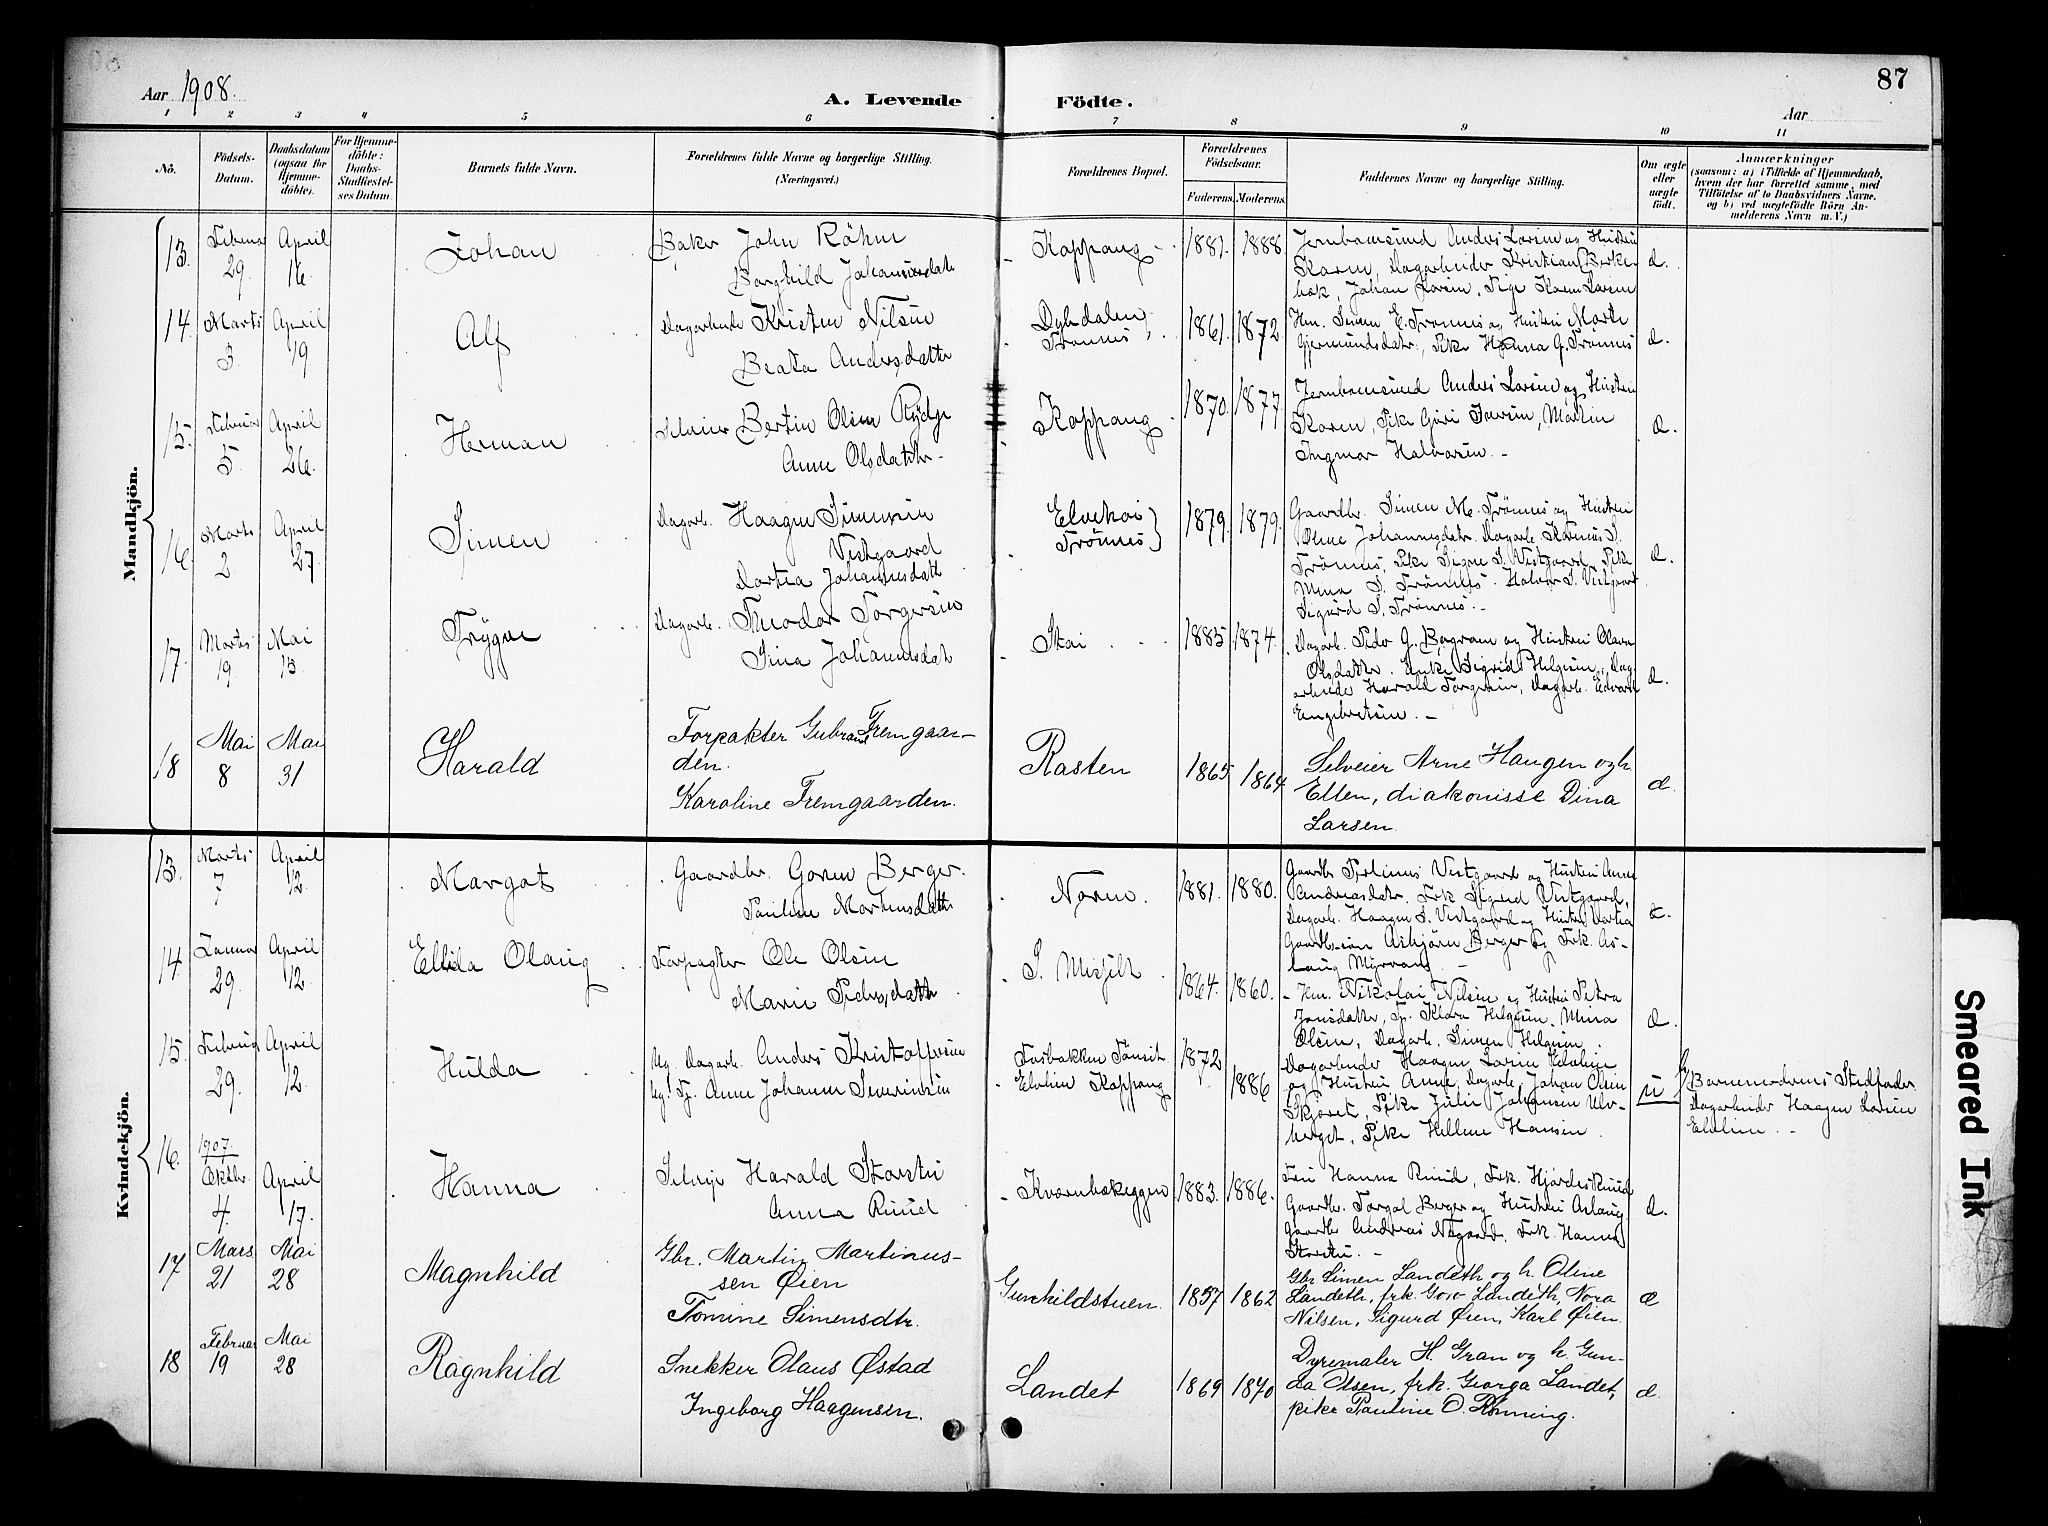 Aar 1908.
A. Levende Födte.
Aar
87
1 2 3 4 5 6 7 8 9 10 11
No.
Födsels-Datum.
Daabsdatum (ogsaa for Hjemme-döbte).
For Hjemme-döbte: Daabs-Stadfæstel-ses Datum.
Barnets fulde Navn.
Forældrenes fulde Navne og borgerlige Stilling. (Næringsvei.)
Forældrenes Bopæl.
Forældrenes Födselsaar.
Faderens. Moderens.
Faddernes Navne og borgerlige Stilling.
Om ægte eller uægte födt.
Anmærkninger
(saasom: a) i Tilfælde af Hjemmedaab,
hvem der har forrettet samme, med
Tilföielse af to Daabsvidners Navne.
og b) ved uægtefödte Börn An-
melderens Navn m. V.)
Mandkjön.
13. Februar 29. April 16.
Johan
Baker John Röhne
Borghild Johansesdatr
Koppang
1881. 1888.
Jernbanemand Anders Larsen og Hustru
Karen, Dagarbeider Kristian Birke-
bæk, Johan Larsen, Pige Karen Larsen
æ.
14. Marts 3. April 19
Alf
Dagarbeide Kristen Nilsen
Beata Andersdatter
Dybdalen, Trønnes
1861. 1872.
Hm. Simen E. Trønnes og Hustru Marte
Gjermundsdatr., Pike Hanna G. Trønnes
æ.
15. Februar 5. April 26.
Herman
Selveier Bertin Olsen
Anne Olsdatter
Koppang
1870. 1877.
Jernbanemand Anders Larsen og Hustru
Karen, Pike Guri Iversen, Martin
Ingmar Halvorsen.
æ.
16. Marts 2 April 27
Simen
Dagarb. Haagen Simensen
Vestgaard
Dortea Johannesdatr
Trønnes
1879. 1879.
Gaardbr. Simen M. Trønnes og Hustru
Oline Johannesdatr. Dagarb. Karenius S.
Trønnes, Pike Signe S. Vestgaard, Pike
Mina S. Trønnes. Halvor S. Vestgaard
Sigurd S. Trønnes.
æ.
17. Marts 19. Mai 15.
Trygve
Dagarb. Theodor Torgersen
Sina Johannesdatr
Stai
1885 1874.
Dagarb. Peder G. Bergram og Hustru Olava
Olsdatter. Enke Sigrid Helgesen, Dag-
arbeide Harald Torgersen, Dagarb. Edvard
Engebretsen.
æ.
18 Mai 8 Mai 31
Harald
Forpakter Gubrand Fremgaar-
den.
Karoline Fremgaarden.
Rasten
1865 1864
Selveier Arne Haugen og h.
Ellen, diakonisse Dina
Larsen.
æ.
Kvindekjön.
13. Marts 7 April 12.
Margot
Gaardbr. Goren Berger.
Pauline Mortensdatr
Noren.
1881. 1880.
Vestgaard og Hustru Anne
Andreasdatr. Frk Sigrid Vestgaard,
Dagarb. Haagen S. Vestgaard og Hustru Dortea
Gaardb.søn Asbjørn Berger og Frk. As-
laug Myrvang.
æ.
14. Januar 29. April 12.
Ellida Olaug
Forpagter Ole Olsen
Marie Pedersdatter
S. Messelt
1864. 1860.
Hm. Nikolai Nilsen og Hustru Petra
Jonsdatter, Tj. Klara Helgesen, Mina
Olsen, Dagarb. Simen Helgesen.
æ.
15. Februar 29. April 12.
Hulda
Ug. Dagarb. Anders Kristoffersen
Ug. Tj. Anne Johanne Severinsen
Fosbakken Tønset
Elvlien Koppang
1872 1886
Dagarbeide Haagen Larsen Elvlien
og Hustru Anne, Dagarb. Johan Olsen
Skjøret, Pike Julie Johansen Ulv-
berget, Pike Hellene Hansen.
u
Barnemoderens Stedfader
Dagarbeider Haagen Larsen
Elvlien.
16. 1907 Oktbr. 4. April 17.
Hanna
Selveje Harald Storstei
Anna Ruud
Kværnbækeggen
1883. 1886.
Fru Hanna Ruud, Frk. Hjørdis Ruud
Gaardb. Torgal Berger og Hustru Aslaug.
Gaardb Andreas Negaard. Frk. Hanna
Storstei.
æ.
17 Mars 21 Mai 28
Magnhild
Gbr. Martin Martinus-
sen Øien
Tomine Simensdtr.
Gunhildstuen.
1857 1862
Gbr Simen Landeth og h. Oline
Landeth, frk. Goro Landeth, Nora
Nilsen, Sigurd Øien, Karl Øien.
æ
18 Februar 19 Mai 28
Ragnhild
Snekker Olaus Østad
Ingeborg Haagensen.
Landet
1869 1870
Dyremaler H. Gran og h. Gun-
da Olsen, frk. Georga Landet,
pike Pauline O. Rønning.
æ.
Smeared Ink